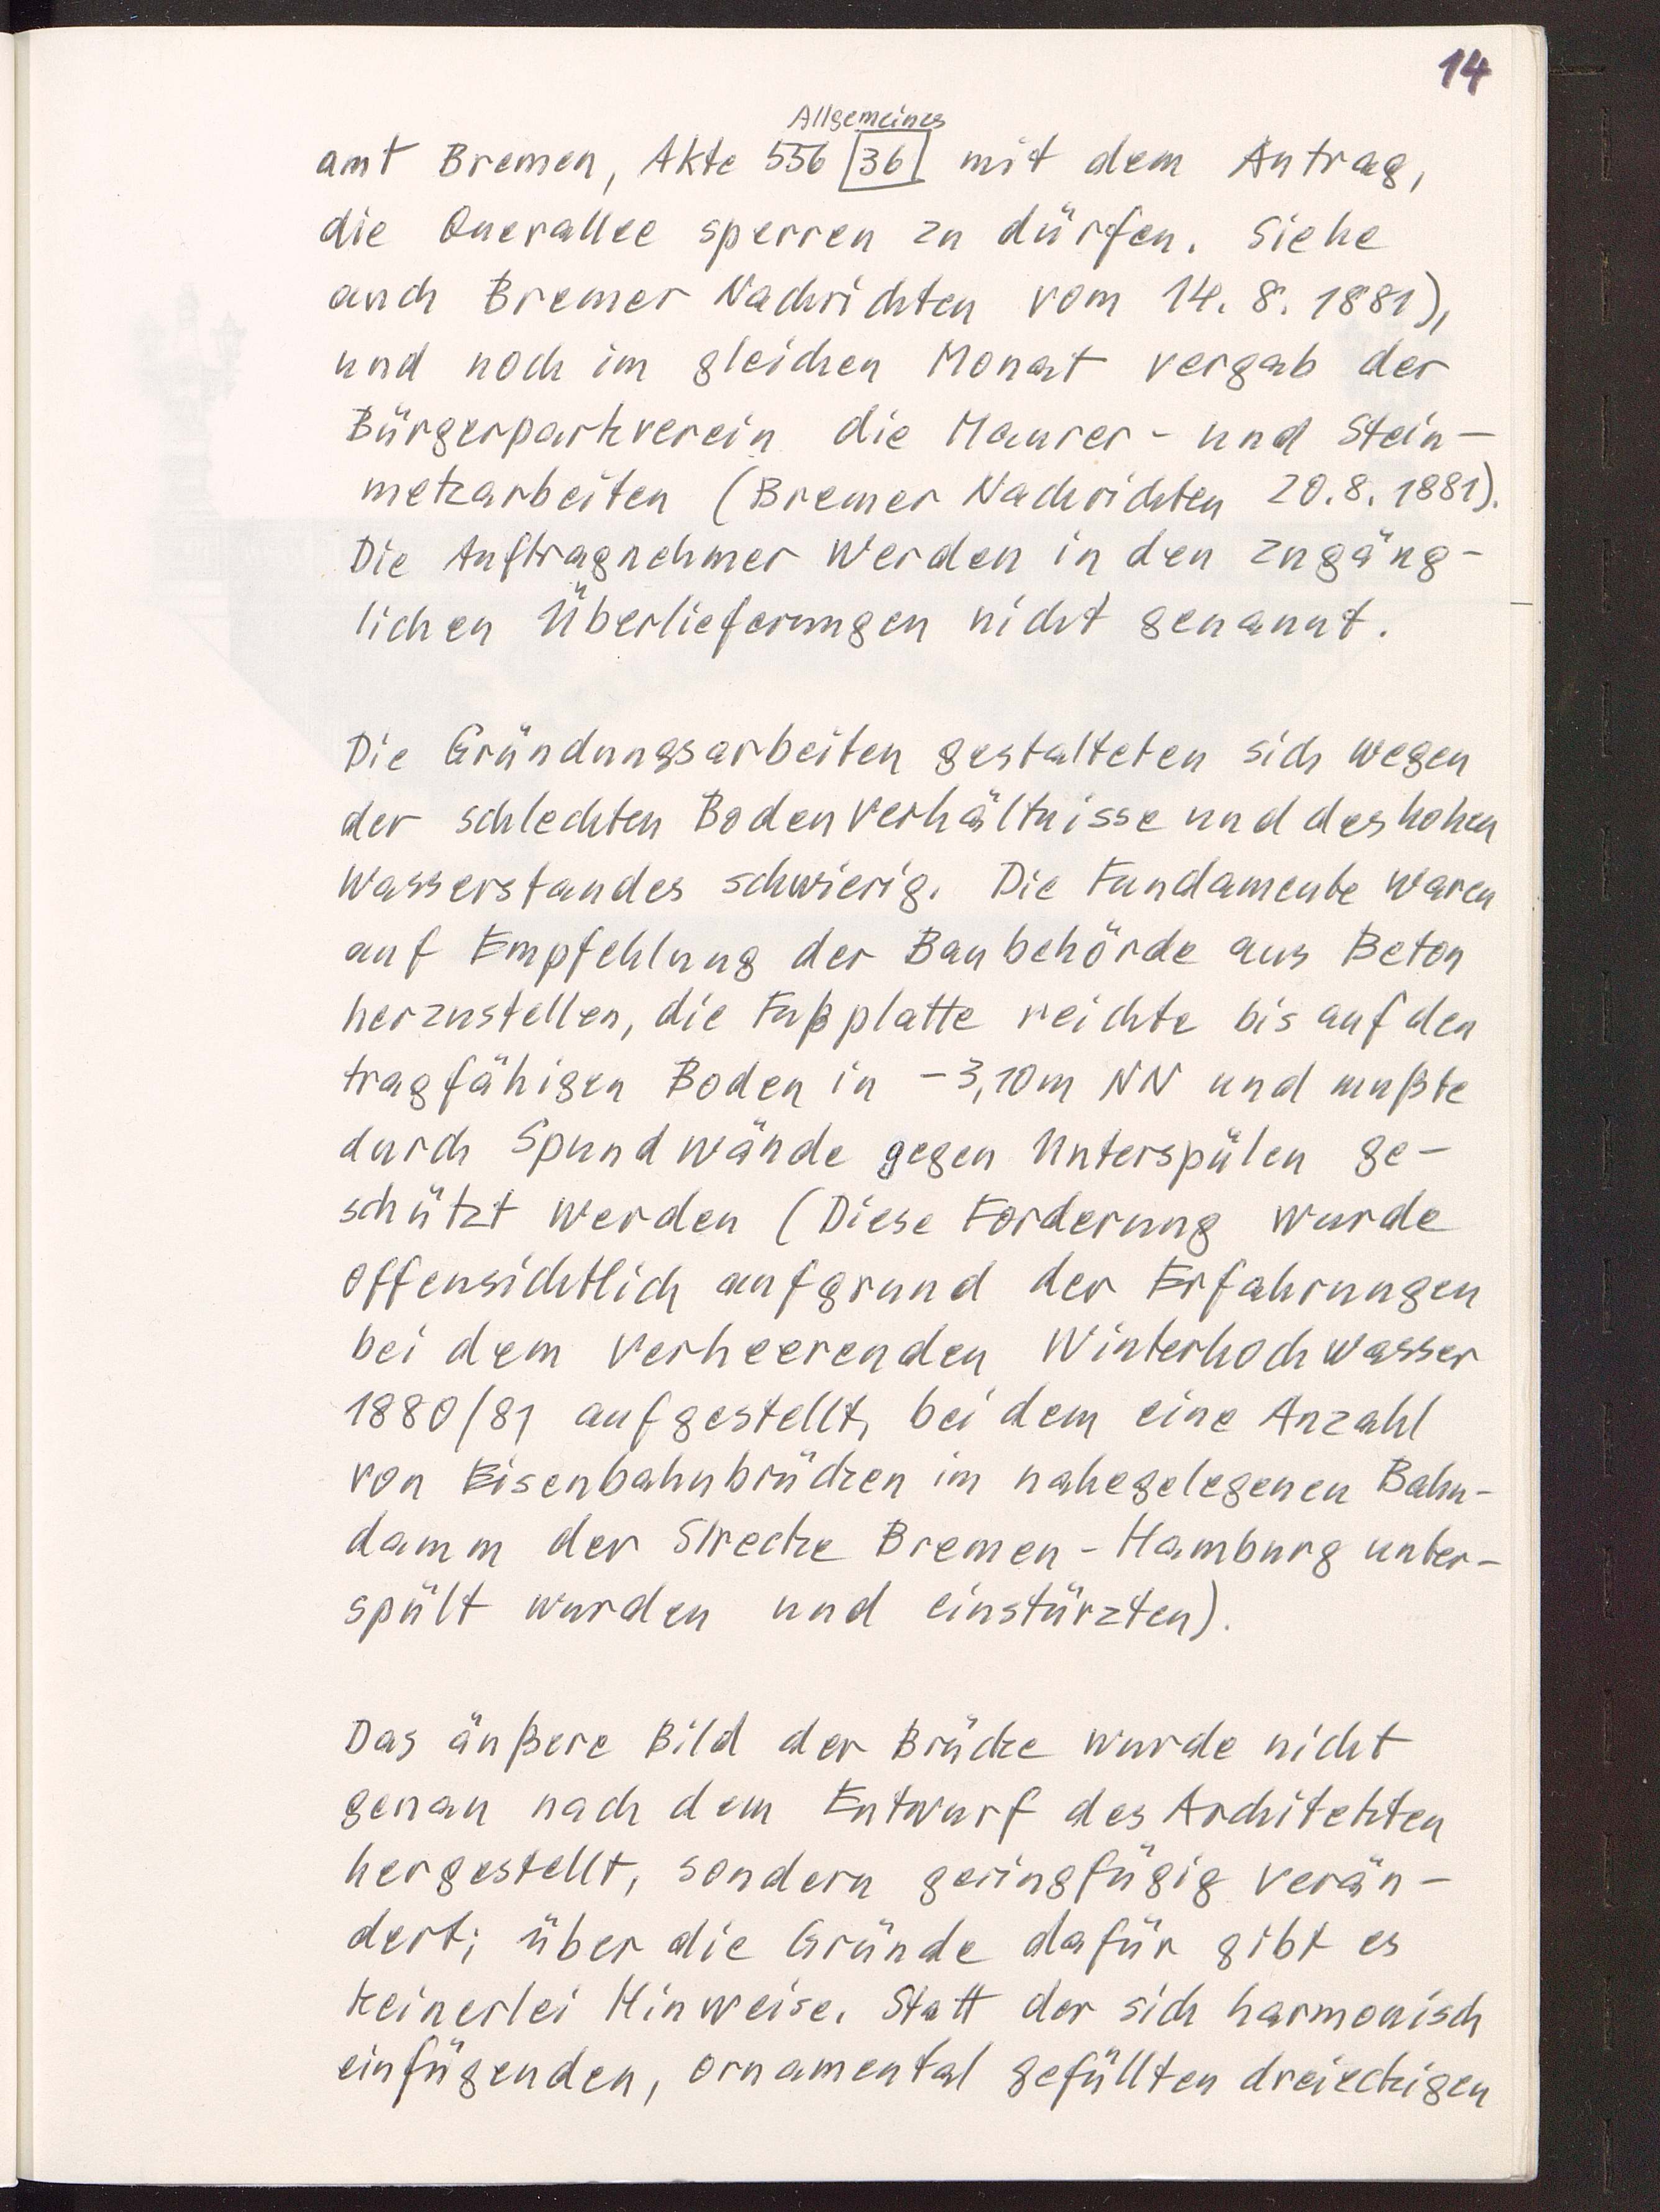 14
Allgemeines
amt Bremen, Akte 556 36 mit dem Antrag,
die Querallee sperren zu dürfen. Siehe
auch Bremer Nachrichten vom 14. 8. 1881),
und noch im gleichen Monat vergab der
Bürgerparkverein die Maurer- und Stein-
metzarbeiten (Bremer Nachrichten 20.8.1881).
Die Auftragnehmer werden in den zugäng-
lichen Überlieferungen nicht genannt.
Die Gründungsarbeiten gestalteten sich wegen
der schlechten Bodenverhältnisse und des hohen
Wasserstandes schwierig. Die Fundamente waren
auf Empfehlung der Baubehörde aus Beton
herzustellen, die Fußplatte reichte bis auf den
tragfähigen Boden in -3,10m NN und mußte
durch Spundwände gegen Unterspülen ge-
schützt werden (Diese Forderung wurde
offensichtlich aufgrund der Erfahrungen
bei dem verheerenden Winterhochwasser
1880/81 aufgestellt, bei dem eine Anzahl
von Eisenbahnbrücken im nahegelegenen Bahn-
damm der Strecke Bremen-Hamburg unter-
spült wurden und einstürzten).
Das äußere Bild der Brücke wurde nicht
genau nach dem Entwurf des Architekten
hergestellt, sondern geringfügig verän-
dert; über die Gründe dafür gibt es
keinerlei Hinweise. Statt der sich harmonisch
einfügenden, ornamental gefüllten dreieckigen